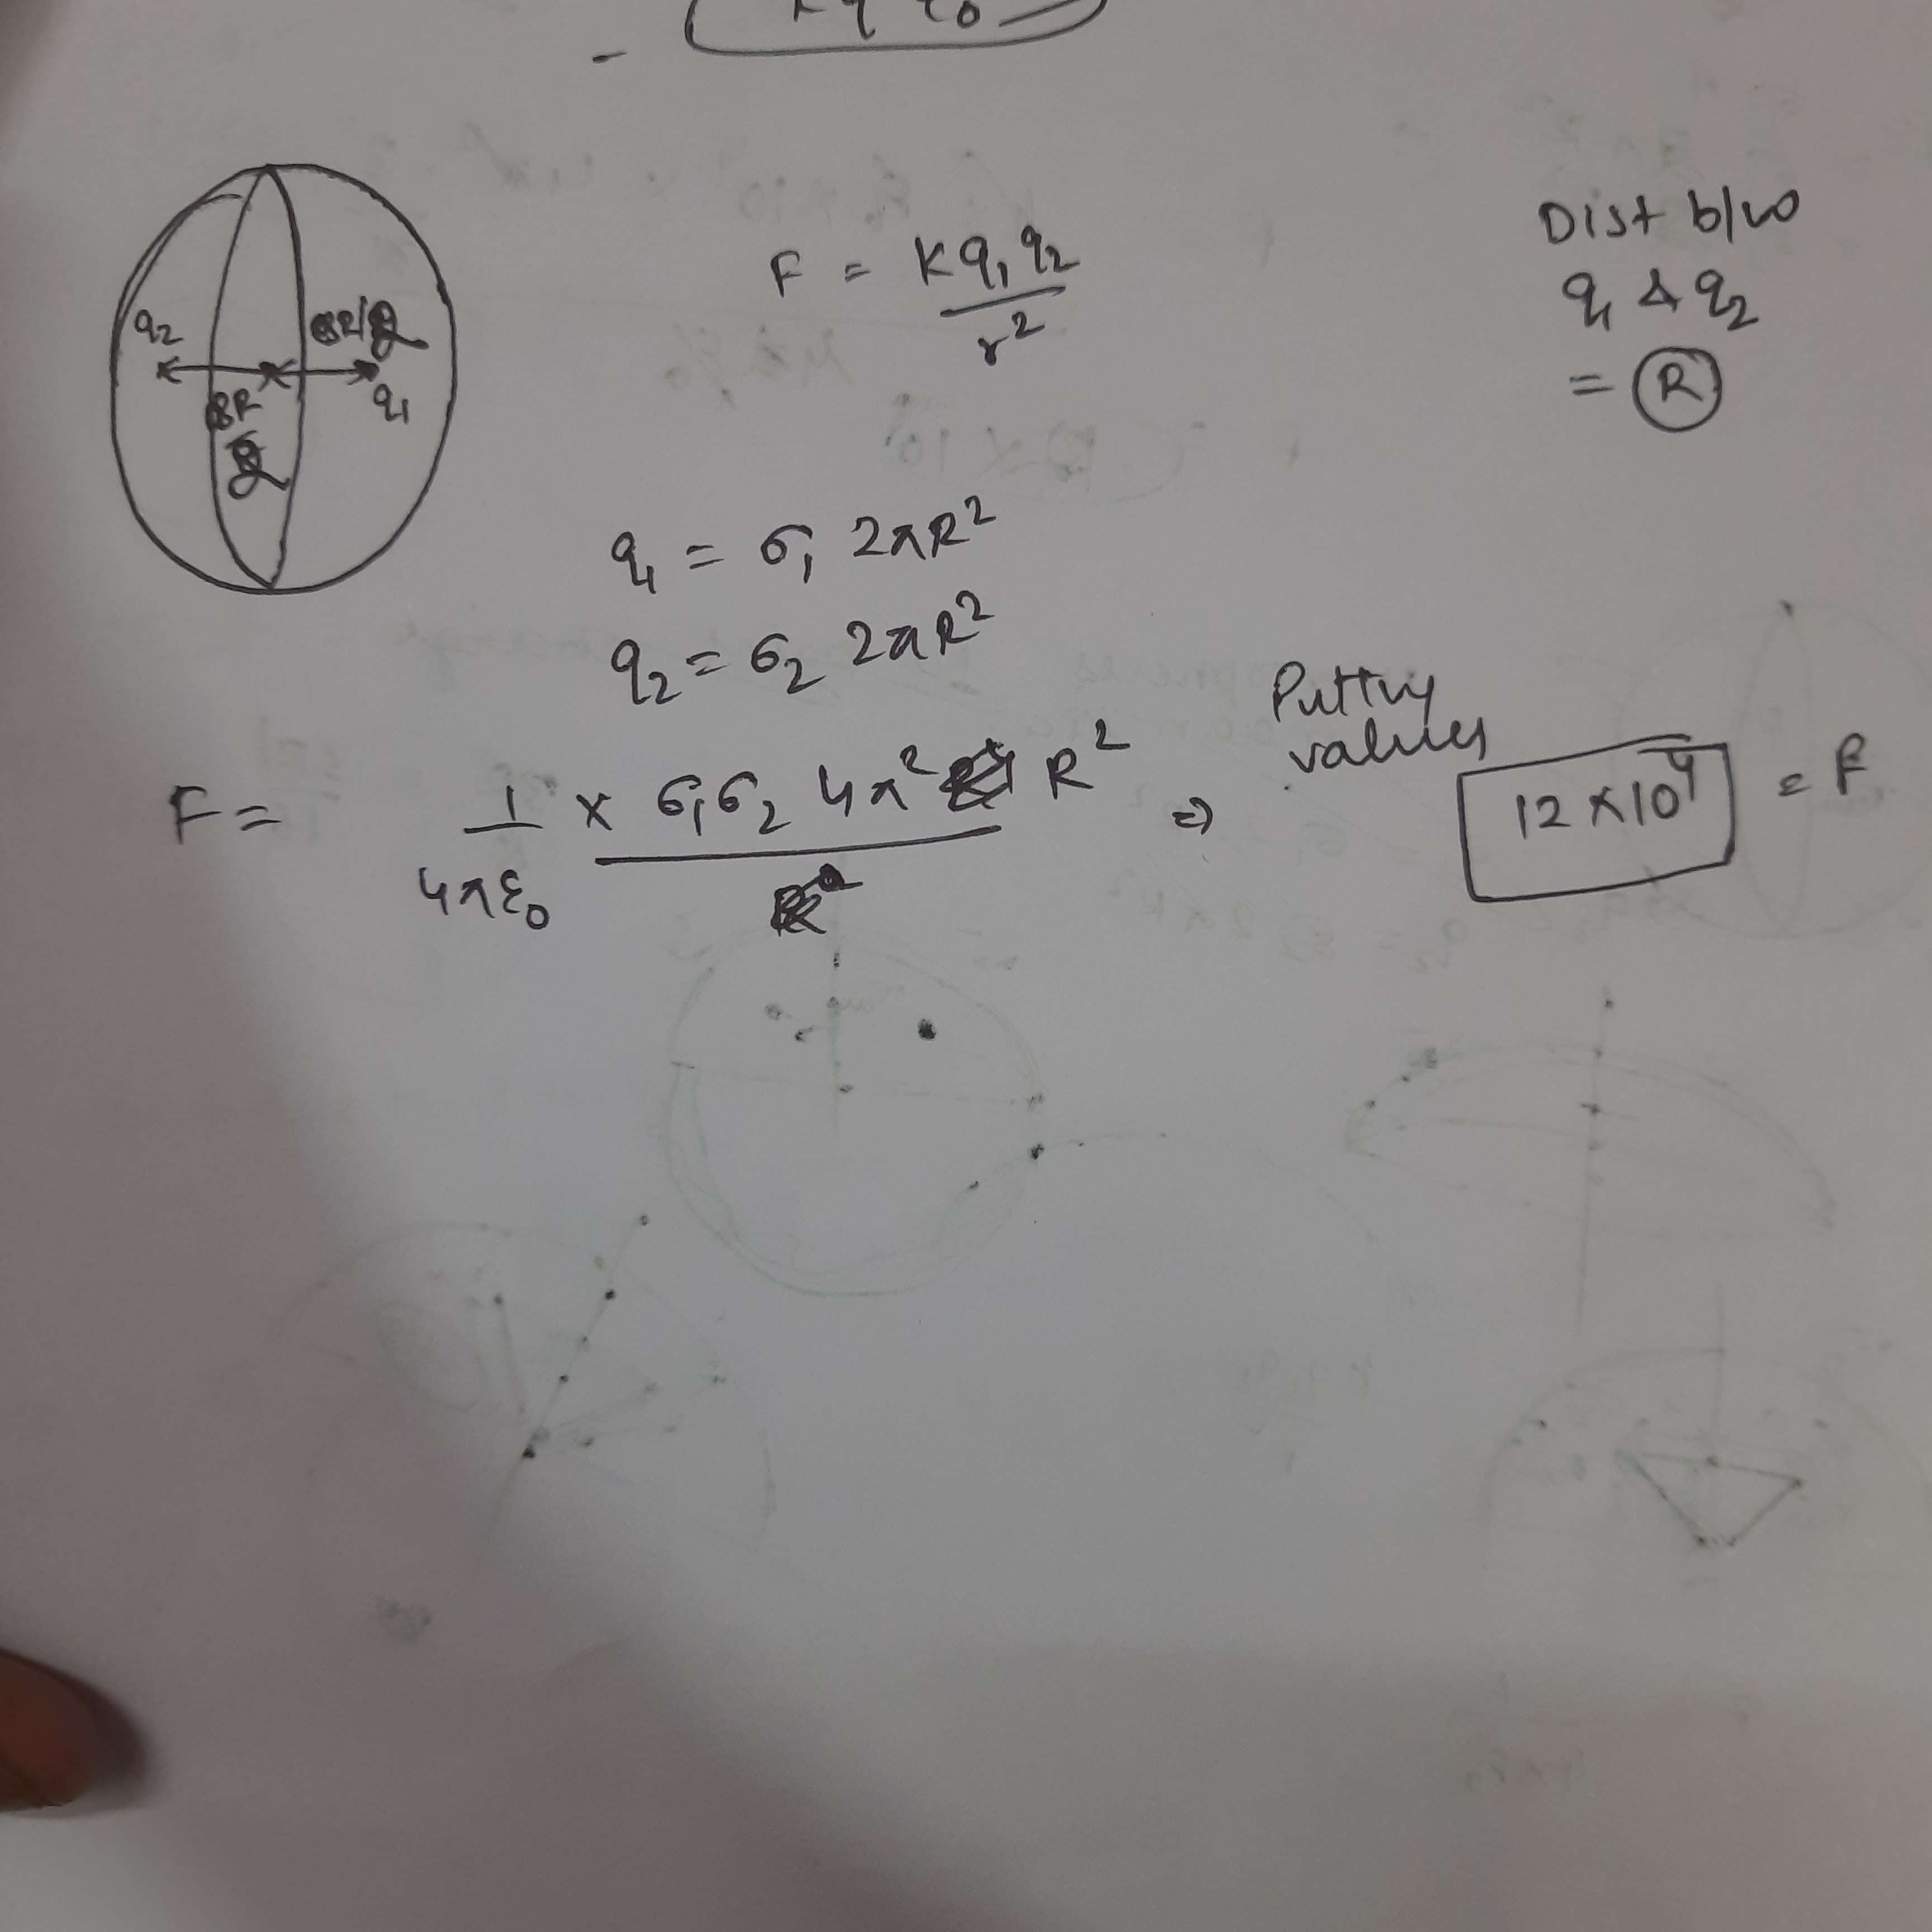 F = Kq₁q₂ / r²
Dist b/w
q₁ & q₂
= R
q₂
q₁
q₁ = σ₁ 2πR²
q₂ = σ₂ 2πR²
F = 1/4πε₀ × σ₁σ₂ 4π² R² ⇒
Putting
values
12 × 10⁴ = F